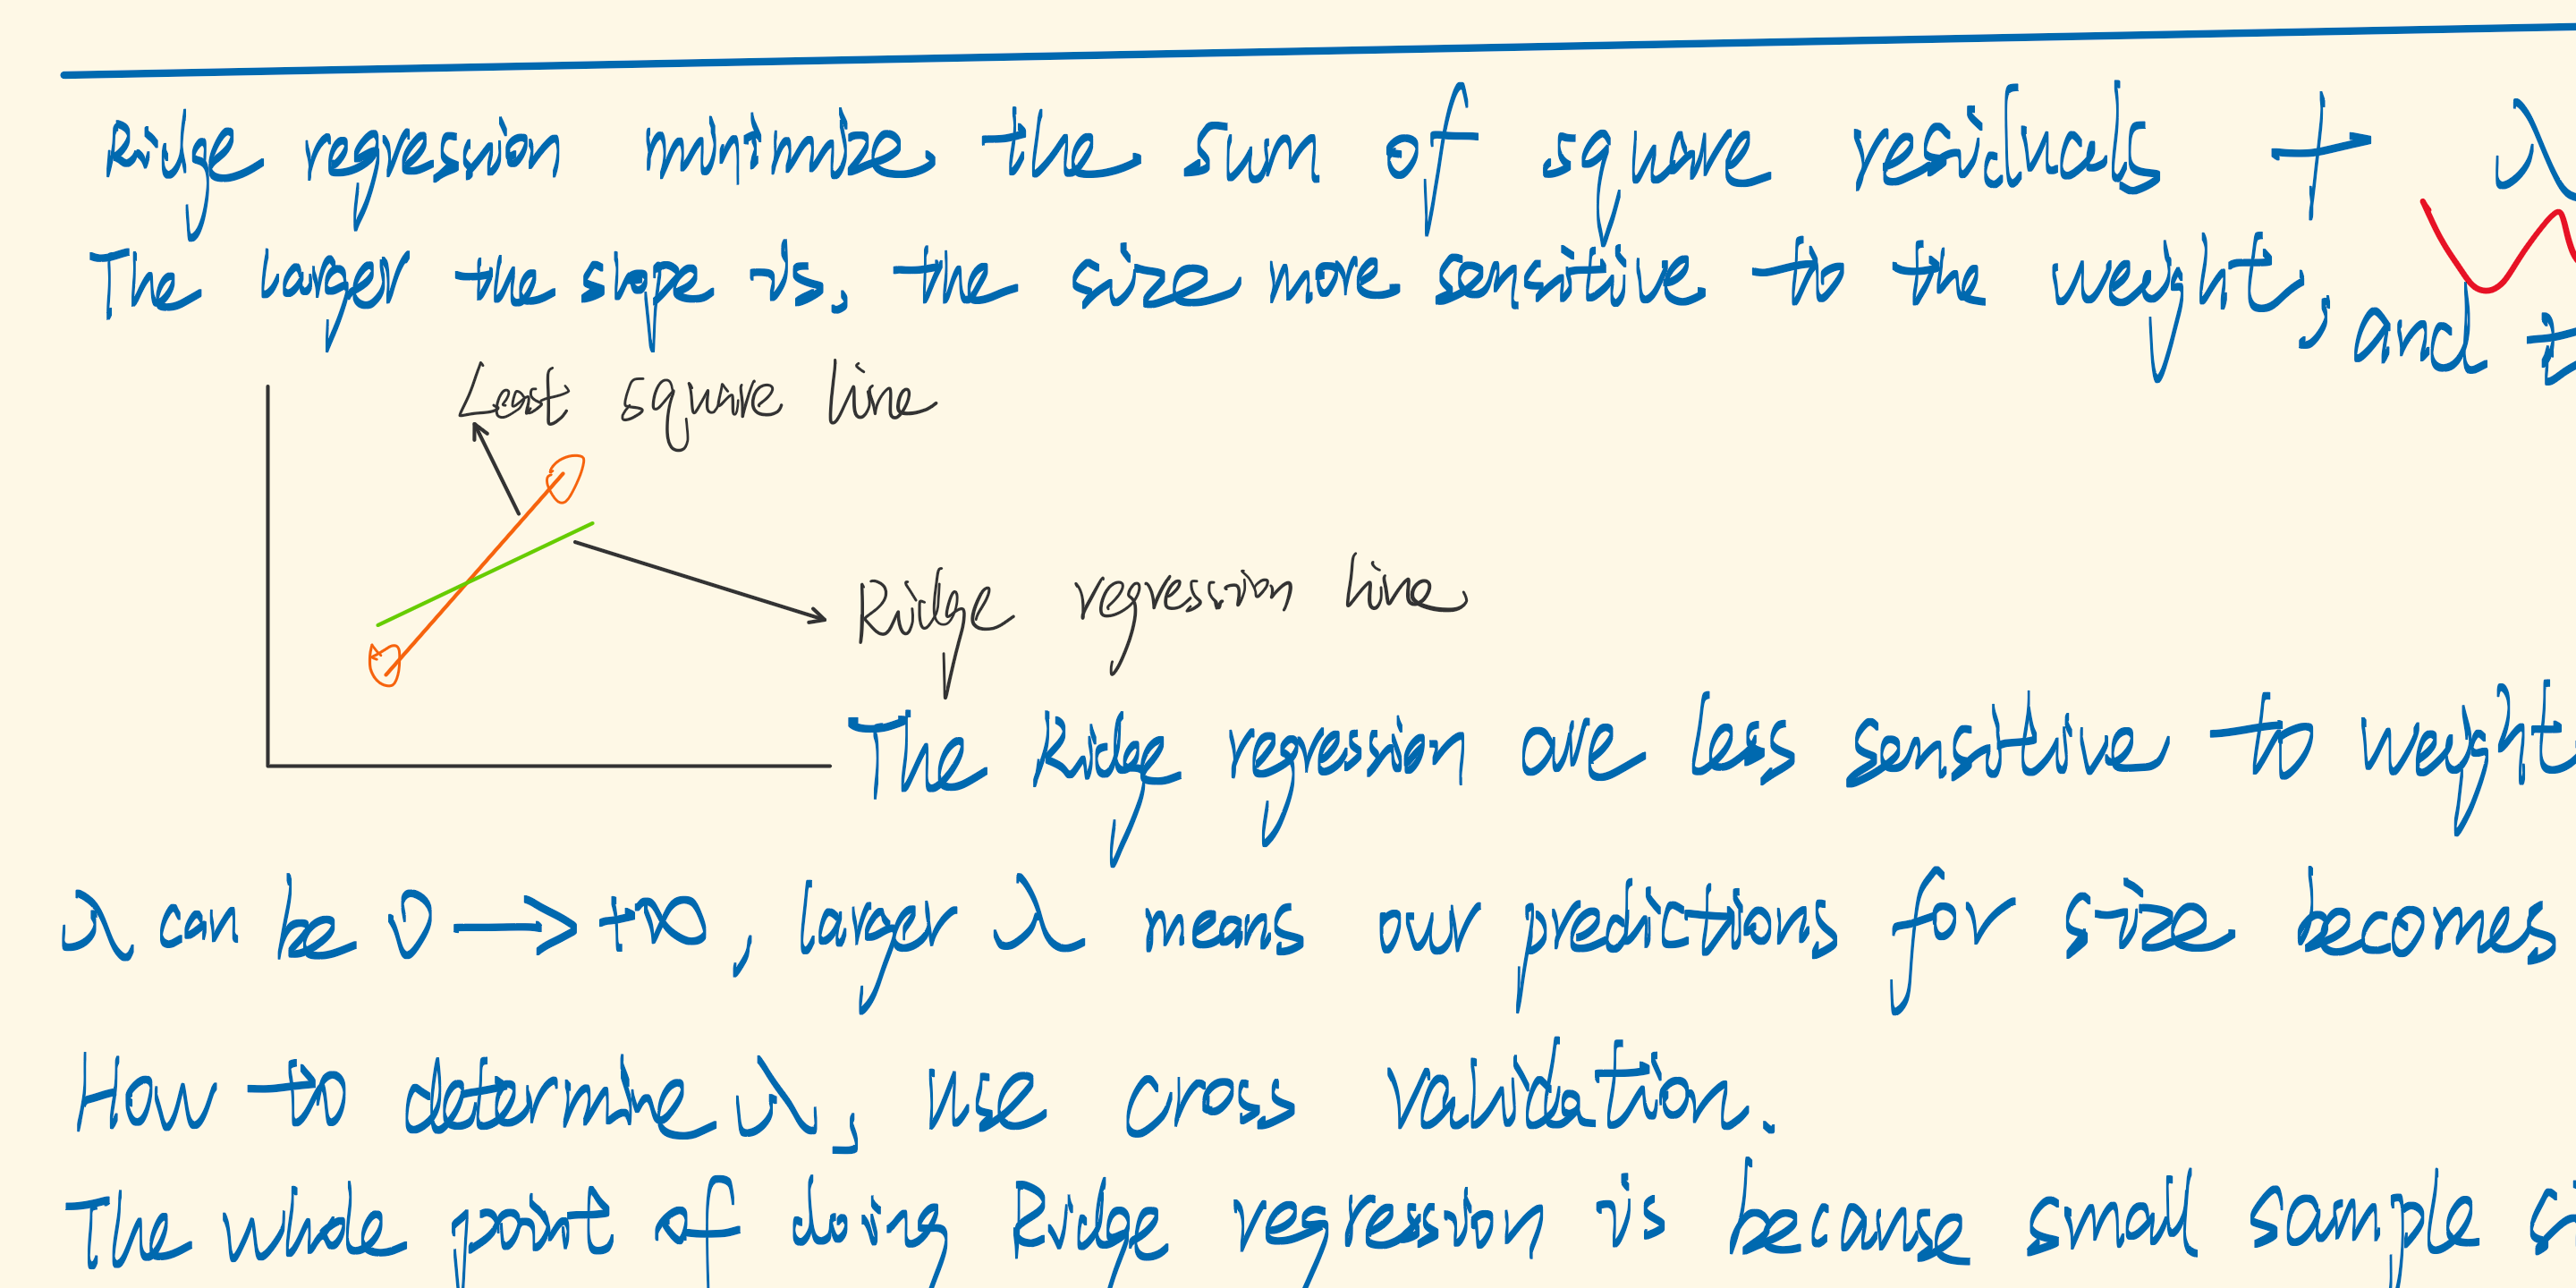 Ridge regression minimize the sum of square residuals + λ
The larger the slope is, the size more sensitive to the weight, and
Least square line
Ridge regression line
The Ridge regression are less sensitive to weight
λ can be 0 → +∞, larger λ means our predictions for size becomes
How to determine λ, use cross validation.
The whole point of doing Ridge regression is because small sample